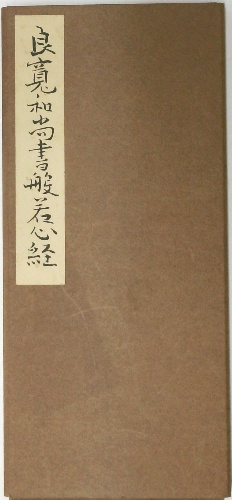 良寛和尚書般若心経